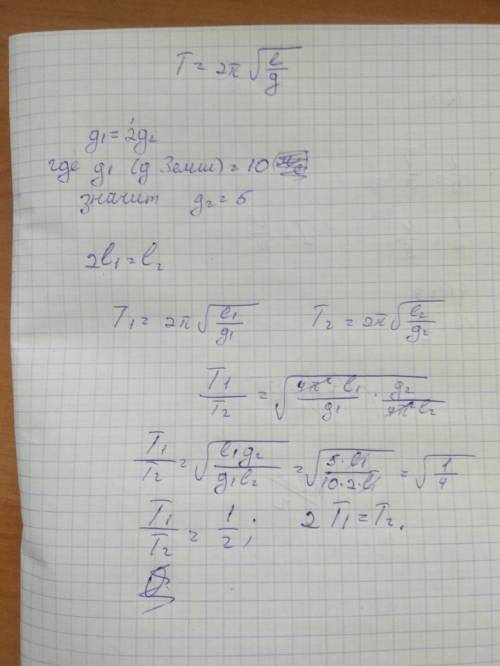 T = 2π √(l/g)
g₁ = 2g₂
где g₁ (g Земли) = 10
значит g₂ = 5
2l₁ = l₂
T₁ = 2π √(l₁/g₁) T₂ = 2π √(l₂/g₂)
T₁/T₂ = √(4π² l₁/g₁ · g₂/4π² l₂)
T₁/T₂ = √(l₁g₂/g₁l₂) = √(5·l₁/10·2·l₁) = √(1/4)
T₁/T₂ = 1/2; 2T₁ = T₂.